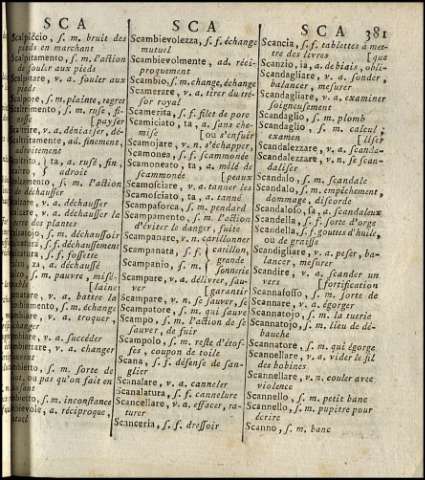 SCA
SCA
SCA 381
Scalpiccio, s. m. bruit des
pieds en marchant
Scalpitamento, s. m. l'action
de fouler aux pieds
v. a. fouler
aux pieds
s. m. plainte, regret
s. m. ruse, fi-
[payser
v. a. déniaiser, dé-
ad. finement,
adroitement
ta, a. rusé, fin,
adroit
s. m. l'action
déchausser
v. a. déchausser
v. a. déchausser la
terre des plantes
s. m. déchaussoir
s. f. déchaussement
s. f. fossette
za, a. déchaussé
s. m. pauvre, misé-
rable [laine
v. a. battre la
s. m. échange
v. a. troquer,
changer
v. a. succéder
v. a. changer
s. m. sorte de
ou pas qu'on fait en
s. m. inconstance
a. réciproque,
Scambievolezza, s. f. échange
mutuel
Scambievolmente, ad. réci-
proquement
Scambio, s. m. change, échange
Scamerare, v. a. tirer du tré-
sor royal
Scamerita, s. f. filet de porc
Scamiciato, ta, a. sans che-
mise [ou s'enfuir
Scamojare, v. n. s'échapper,
Scamonea, s. f. scammonée
Scamoneato, ta, a. mêlé de
scammonée [peaux
Scamosciare, v. a. tanner les
Scamosciato, ta, a. tanné
Scampaforca, s. m. pendard
Scampamento, s. m. l'action
d'éviter le danger, fuite
Scampanare, v. n. carillonner
Scampanata, s. f. carillon,
grande
Scampanio, s. m. sonnerie
Scampare, v. a. délivrer, sau-
ver [garantir
Scampare, v. n. se sauver, se
Scampatore, s. m. qui sauve
Scampo, s. m. l'action de se
sauver, de fuir
Scampolo, s. m. reste d'étof-
fes, coupon de toile
Scana, s. f. défense de san-
glier
Scanalare, v. a. canneler
Scanalatura, s. f. cannelure
Scancellare, v. a. effacer, ra-
turer
Scanceria, s. f. dressoir
Scancia, s. f. tablettes à met-
tre des livres [que
Scanzio, ia, a. de biais, obli-
Scandagliare, v. a. sonder,
balancer, mesurer
Scandagliare, v. a. examiner
soigneusement
Scandaglio, s. m. plomb
Scandaglio, s. m. calcul,
examen [liser
Scandalezzare, v. a. scanda-
Scandalezzare, v. n. se scan-
daliser
Scandalo, s. m. scandale
Scandalo, s. m. empêchement,
dommage, discorde
Scandaloso, sa, a. scandaleux
Scandella, s. f. sorte d'orge
Scandella, s. f. gouttes d'huile,
ou de graisse
Scandigliare, v. a. peser, ba-
lancer, mesurer
Scandire, v. a. scander un
vers [fortification
Scannafosso, s. m. sorte de
Scannare, v. a. égorger
Scannatojo, s. m. la tuerie
Scannatojo, s. m. lieu de dé-
bauche
Scannatore, s. m. qui égorge
Scannellare, v. a. vider le fil
des bobines
Scannellare, v. n. couler avec
violence
Scannello, s. m. petit banc
Scannello, s. m. pupitre pour
écrire
Scanno, s. m. banc